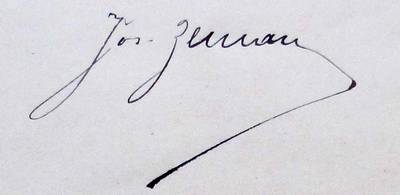 Jos. Zeman